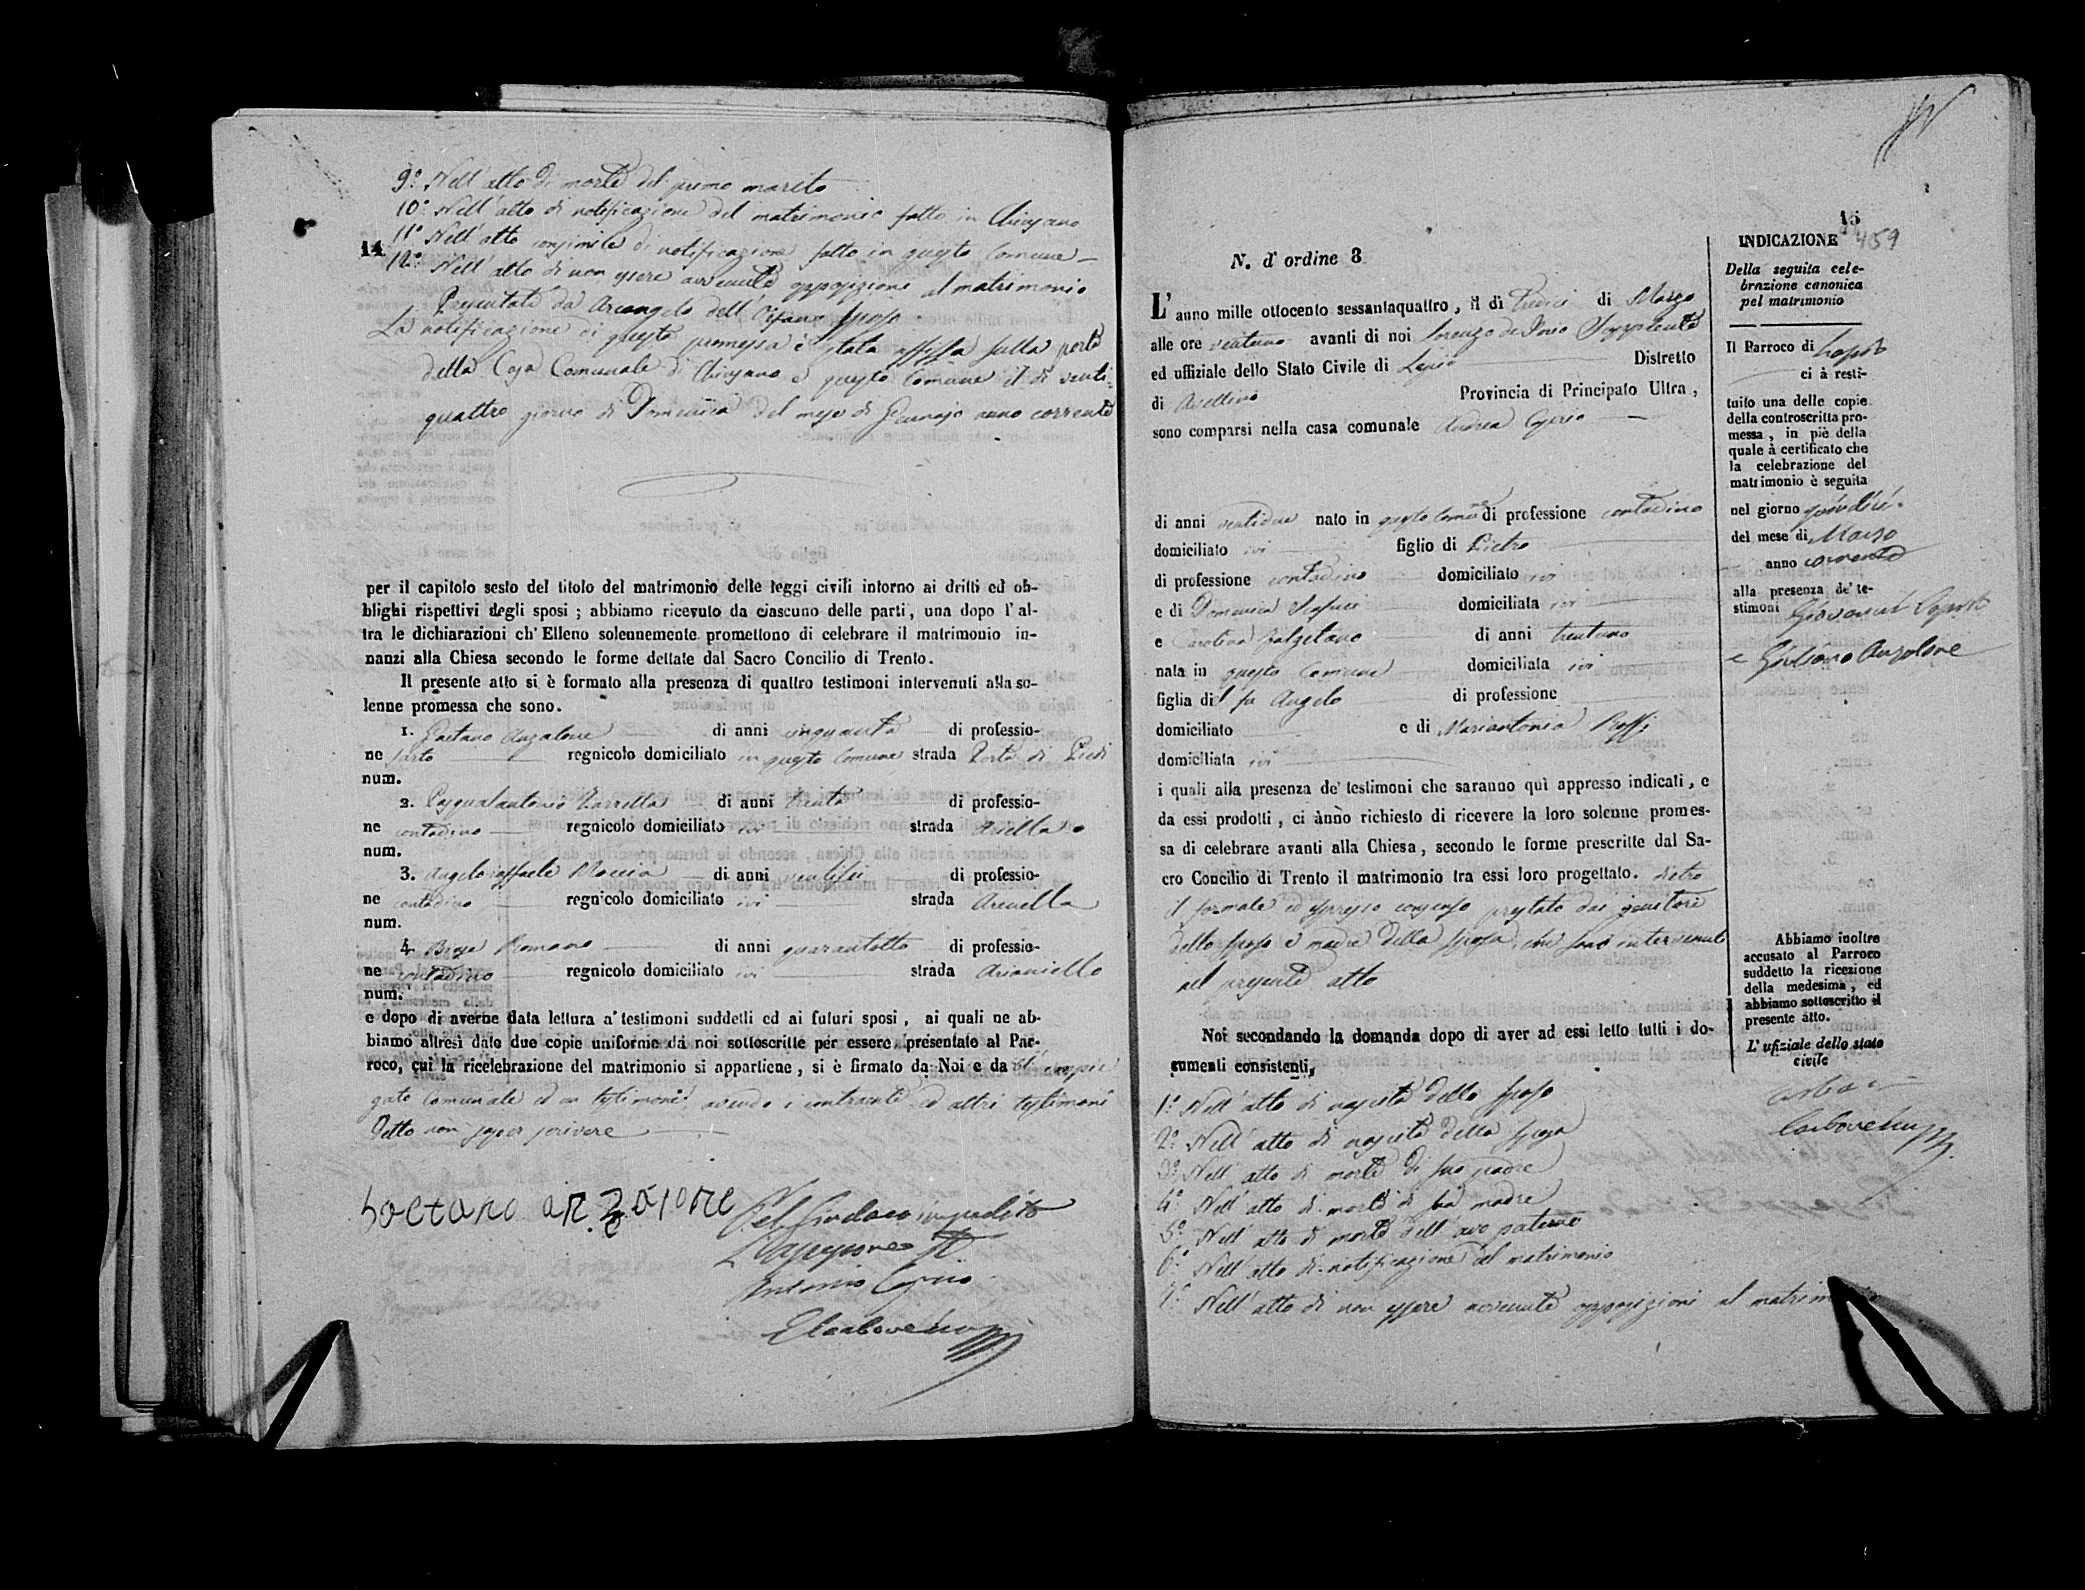 9.° Nell'atto di morte del primo marito
10.° Nell'atto di notificazione del matrimonio fatto in
11.° Nell'atto consimile di notificazione fatto in questo Comune
14
12.° Nell'atto di non essere avvenute opposizioni al matrimonio
Presentate da Arcangelo dell' sposo
La notificazione di questa promessa è stata affissa sulla porta
della Casa Comunale di e questo Comune il dì venti-
quattro giorno di Domenica del mese di Gennajo anno corrente
per il capitolo sesto del titolo del matrimonio delle leggi civili intorno ai dritti ed ob-
blighi rispettivi degli sposi ; abbiamo ricevuto da ciascuno delle parti, una dopo l'al-
tra le dichiarazioni ch'Elleno solennemente promettono di celebrare il matrimonio in-
nanzi alla Chiesa secondo le forme dettate dal Sacro Concilio di Trento.
Il presente atto si è formato alla presenza di quattro testimoni intervenuti alla so-
lenne promessa che sono.
1. Gaetano Anzalone di anni cinquanta di professio-
ne sarto regnicolo domiciliato in questo Comune strada Porta di Piedi
num.
2. Pasqualantonio di anni trenta di professio-
ne contadino regnicolo domiciliato ivi strada
num.
3. Angeloraffaele di anni ventisei di professio-
ne contadino regnicolo domiciliato ivi strada
num.
4. Romano di anni quarantotto di professio-
ne contadino regnicolo domiciliato ivi strada Arianiello
num.
e dopo di averne data lettura a' testimoni suddetti ed ai futuri sposi, ai quali ne ab-
biamo altresì dato due copie uniformie da noi sottoscritte per essere presentate al Par-
roco, cui la ricelebrazione del matrimonio si appartiene, si è firmato da Noi e da
gato Comunale ed un testimone, avendo i contraenti ed altri testimoni
detto non saper scrivere
Gaetano anzalone
Pel Sindaco impedito
Antonio Capiio
15
459
N. d'ordine 8
L'anno mille ottocento sessantaquattro, il dì tredici di Marzo
alle ore ventuno avanti di noi Lorenzo de Iorio Supplente
ed uffiziale dello Stato Civile di Lapio Distretto
di Avellino Provincia di Principato Ultra,
sono comparsi nella casa comunale Andrea
di anni ventidue nato in questo Comune di professione contadino
domiciliato ivi figlio di Pietro
di professione contadino domiciliato ivi
e di Domenica domiciliata ivi
e Carolina di anni trentuno
nata in questo Comune domiciliata ivi
figlia di l fu Angelo di professione
domiciliato e di Mariantonia
domiciliata ivi
i quali alla presenza de' testimoni che saranno quì appresso indicati, e
da essi prodotti, ci ànno richiesto di ricevere la loro solenne promes-
sa di celebrare avanti alla Chiesa, secondo le forme prescritte dal Sa-
cro Concilio di Trento il matrimonio tra essi loro progettato. dietro
il formale ed espresso consenso prestato dai genitori
dello sposo e madre della sposa, che sono intervenuti
nel presente atto
Noi secondando la domanda dopo di aver ad essi letto tutti i do-
cumenti consistenti,
1.° Nell'atto di nascita dello sposo
2.° Nell'atto di nascita della sposa
3.° Nell'atto di morte di suo padre
4.° Nell'atto di morte di sua madre
5.° Nell'atto di morte dell'avo paterno
6.° Nell'atto di notificazione del matrimonio
7.° Nell'atto di non essere avvenute opposizioni al matrimonio
INDICAZIONE
Della seguita cele-
brazione canonica
pel matrimonio
Il Parroco di Lapio
ci à resti-
tuito una delle copie
della controscritta pro-
messa, in piè della
quale à certificato che
la celebrazione del
matrimonio è seguita
nel giorno quindici
del mese di Marzo
anno corrente
alla presenza de' te-
stimoni Giovanni
e Giuliano Anzalone
Abbiamo inoltre
accusato al Parroco
suddetto la ricezione
della medesima, ed
abbiamo sottoscritto il
presente atto.
L'ufiziale dello stato
civile